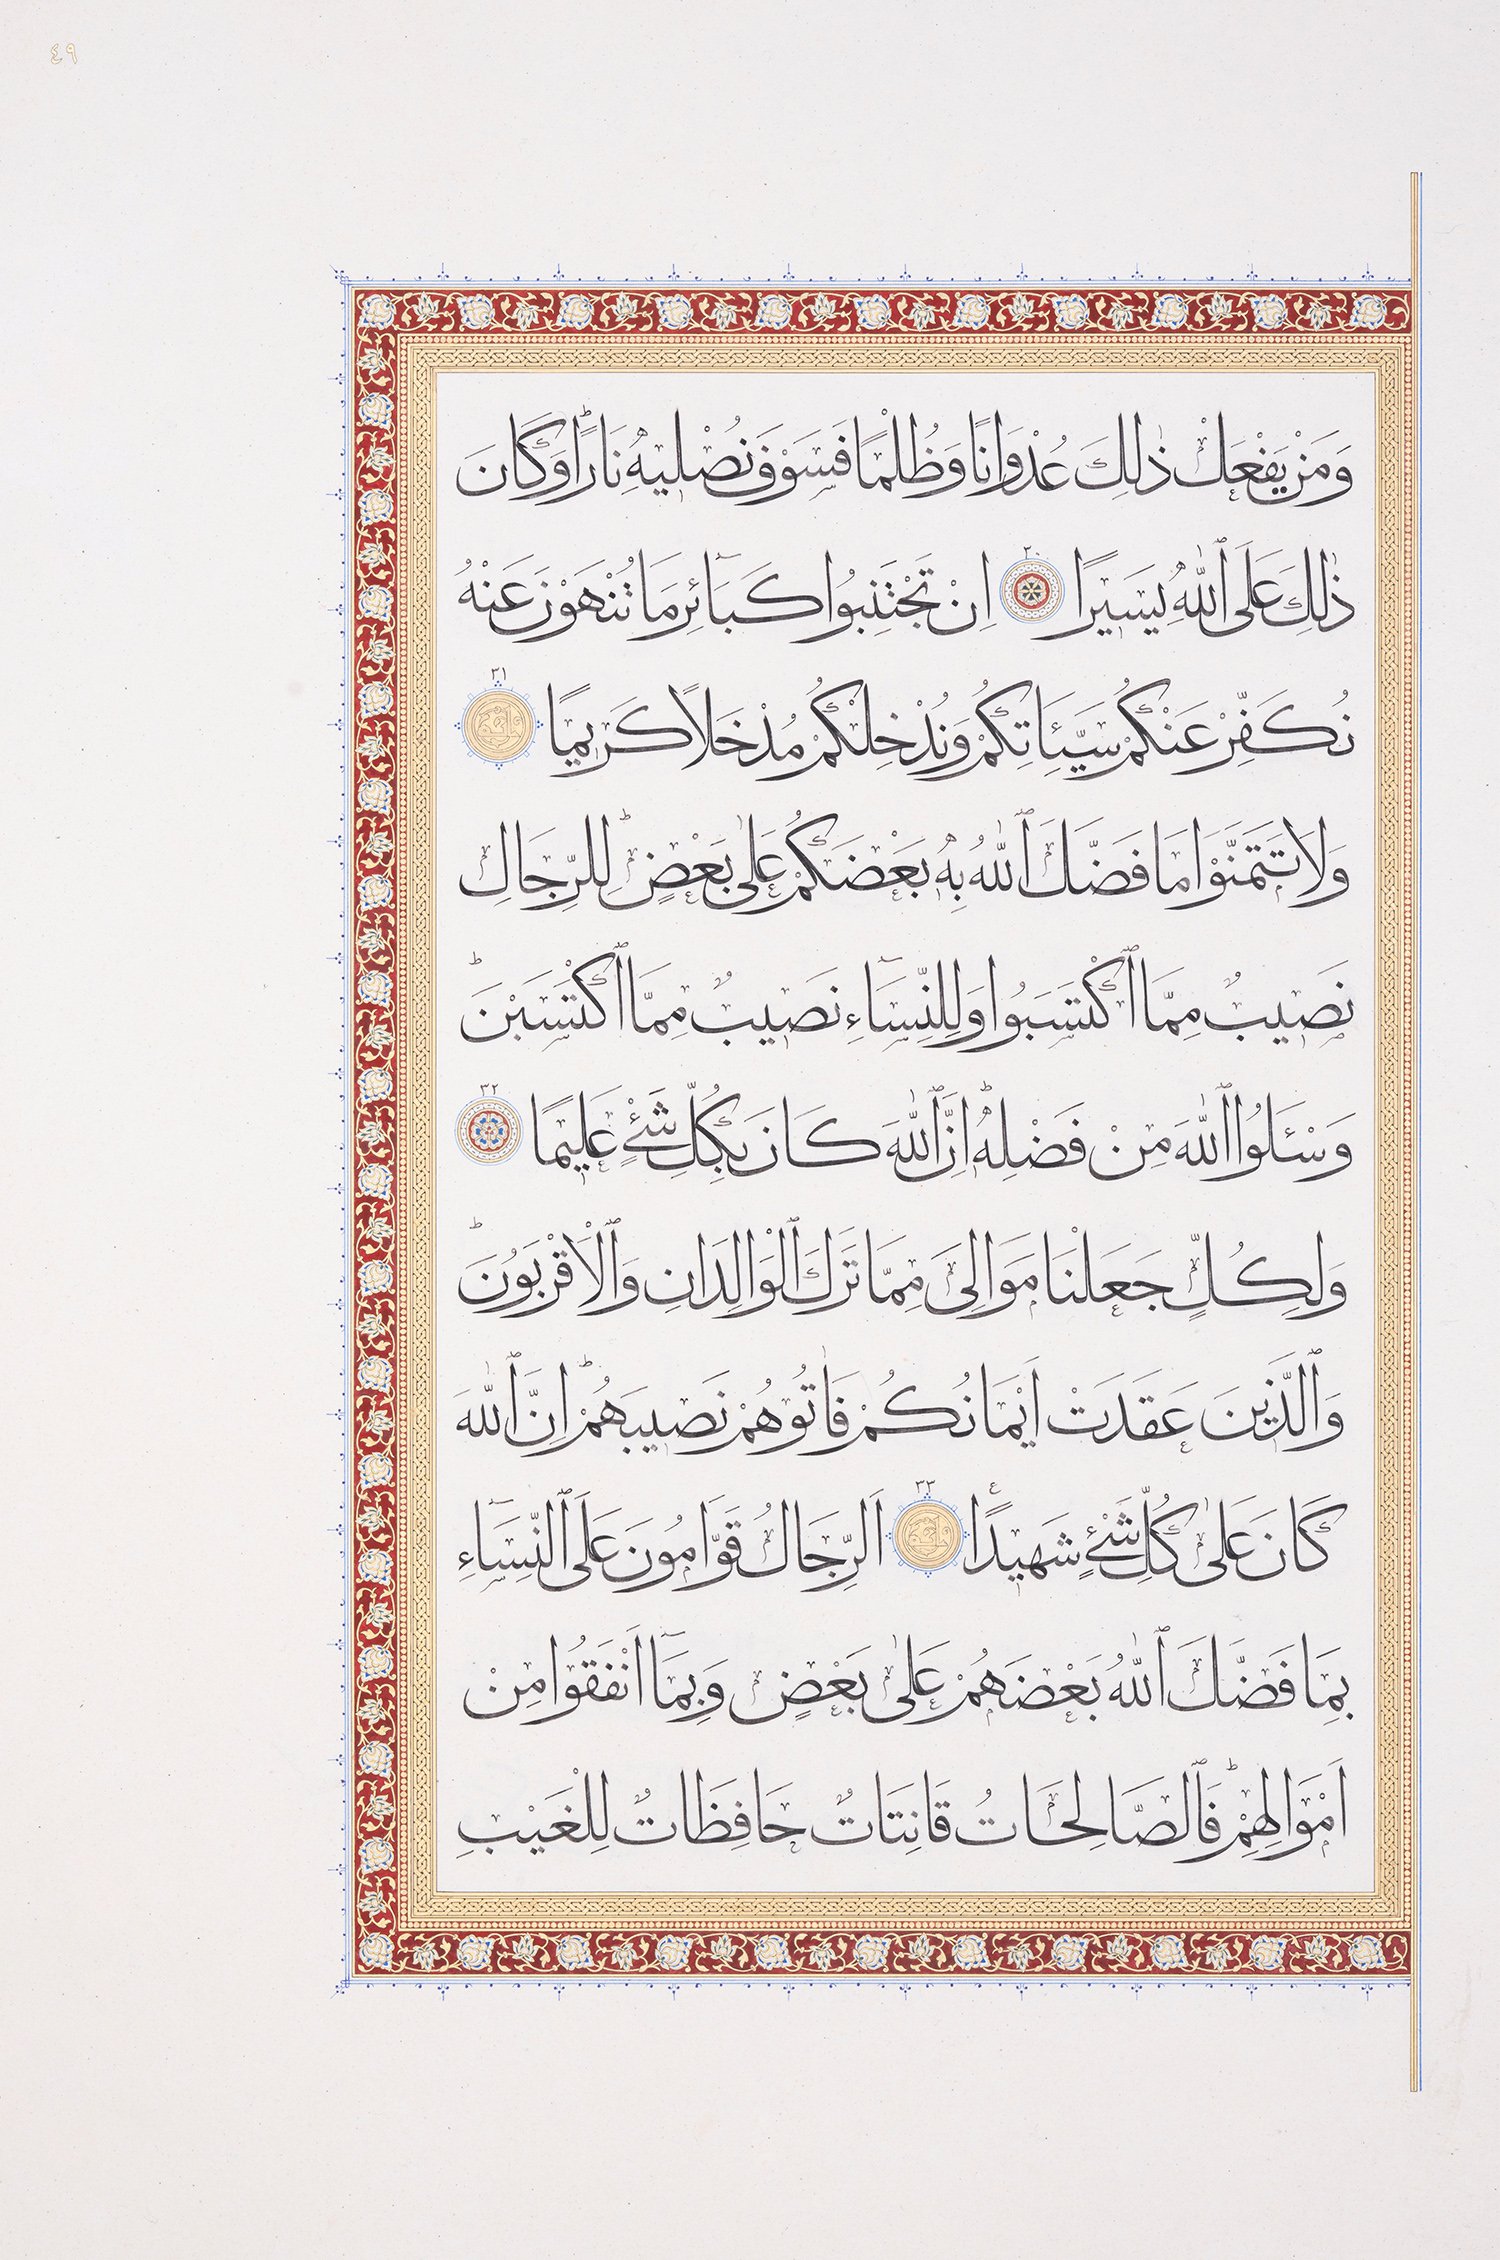 ٤٩
وَمَنْ يَفْعَلْ ذٰلِكَ عُدْوَانًا وَظُلْمًا فَسَوْفَ نُصْلِيهِ نَارًاؕ وَكَانَ
ذٰلِكَ عَلَى ٱللّٰهِ يَسِيرًا ٣٠ اِنْ تَجْتَنِبُوا كَبَٓائِرَ مَا تُنْهَوْنَ عَنْهُ
نُكَفِّرْ عَنْكُمْ سَيِّئَاتِكُمْ وَنُدْخِلْكُمْ مُدْخَلًا كَرِيمًا ٣١
وَلَا تَتَمَنَّوْا مَا فَضَّلَ ٱللّٰهُ بِهِ بَعْضَكُمْ عَلٰى بَعْضٍؕ لِلرِّجَالِ
نَصِيبٌ مِمَّا ٱكْتَسَبُوا وَلِلنِّسَٓاءِ نَصِيبٌ مِمَّا ٱكْتَسَبْنَؕ
وَسْـَٔلُوا ٱللّٰهَ مِنْ فَضْلِهِؕ اِنَّ ٱللّٰهَ كَانَ بِكُلِّ شَيْءٍ عَلِيمًا ٣٢
وَلِكُلٍّ جَعَلْنَا مَوَالِيَ مِمَّا تَرَكَ ٱلْوَالِدَانِ وَٱلْاَقْرَبُونَؕ
وَٱلَّذِينَ عَقَدَتْ اَيْمَانُكُمْ فَاٰتُوهُمْ نَصِيبَهُمْؕ اِنَّ ٱللّٰهَ
كَانَ عَلٰى كُلِّ شَيْءٍ شَهِيدًا ٣٣ اَلرِّجَالُ قَوَّامُونَ عَلَى ٱلنِّسَٓاءِ
بِمَا فَضَّلَ ٱللّٰهُ بَعْضَهُمْ عَلٰى بَعْضٍ وَبِمَٓا اَنْفَقُوا مِنْ
اَمْوَالِهِمْؕ فَٱلصَّالِحَاتُ قَانِتَاتٌ حَافِظَاتٌ لِلْغَيْبِ